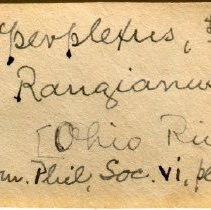 perplexus,
Rangianus
[Ohio Ri
m. Phil. Soc. vi, pl